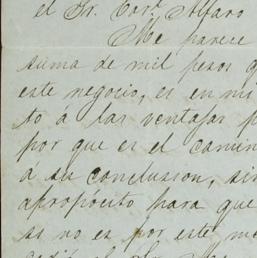 el Sr. Cord. Alfaro
Me parece
suma de mil pesos q
este negocio, es en mi
to á las ventajas p
por que es el camin
á su conclusion, sin
apropósito para que
si no es por este me